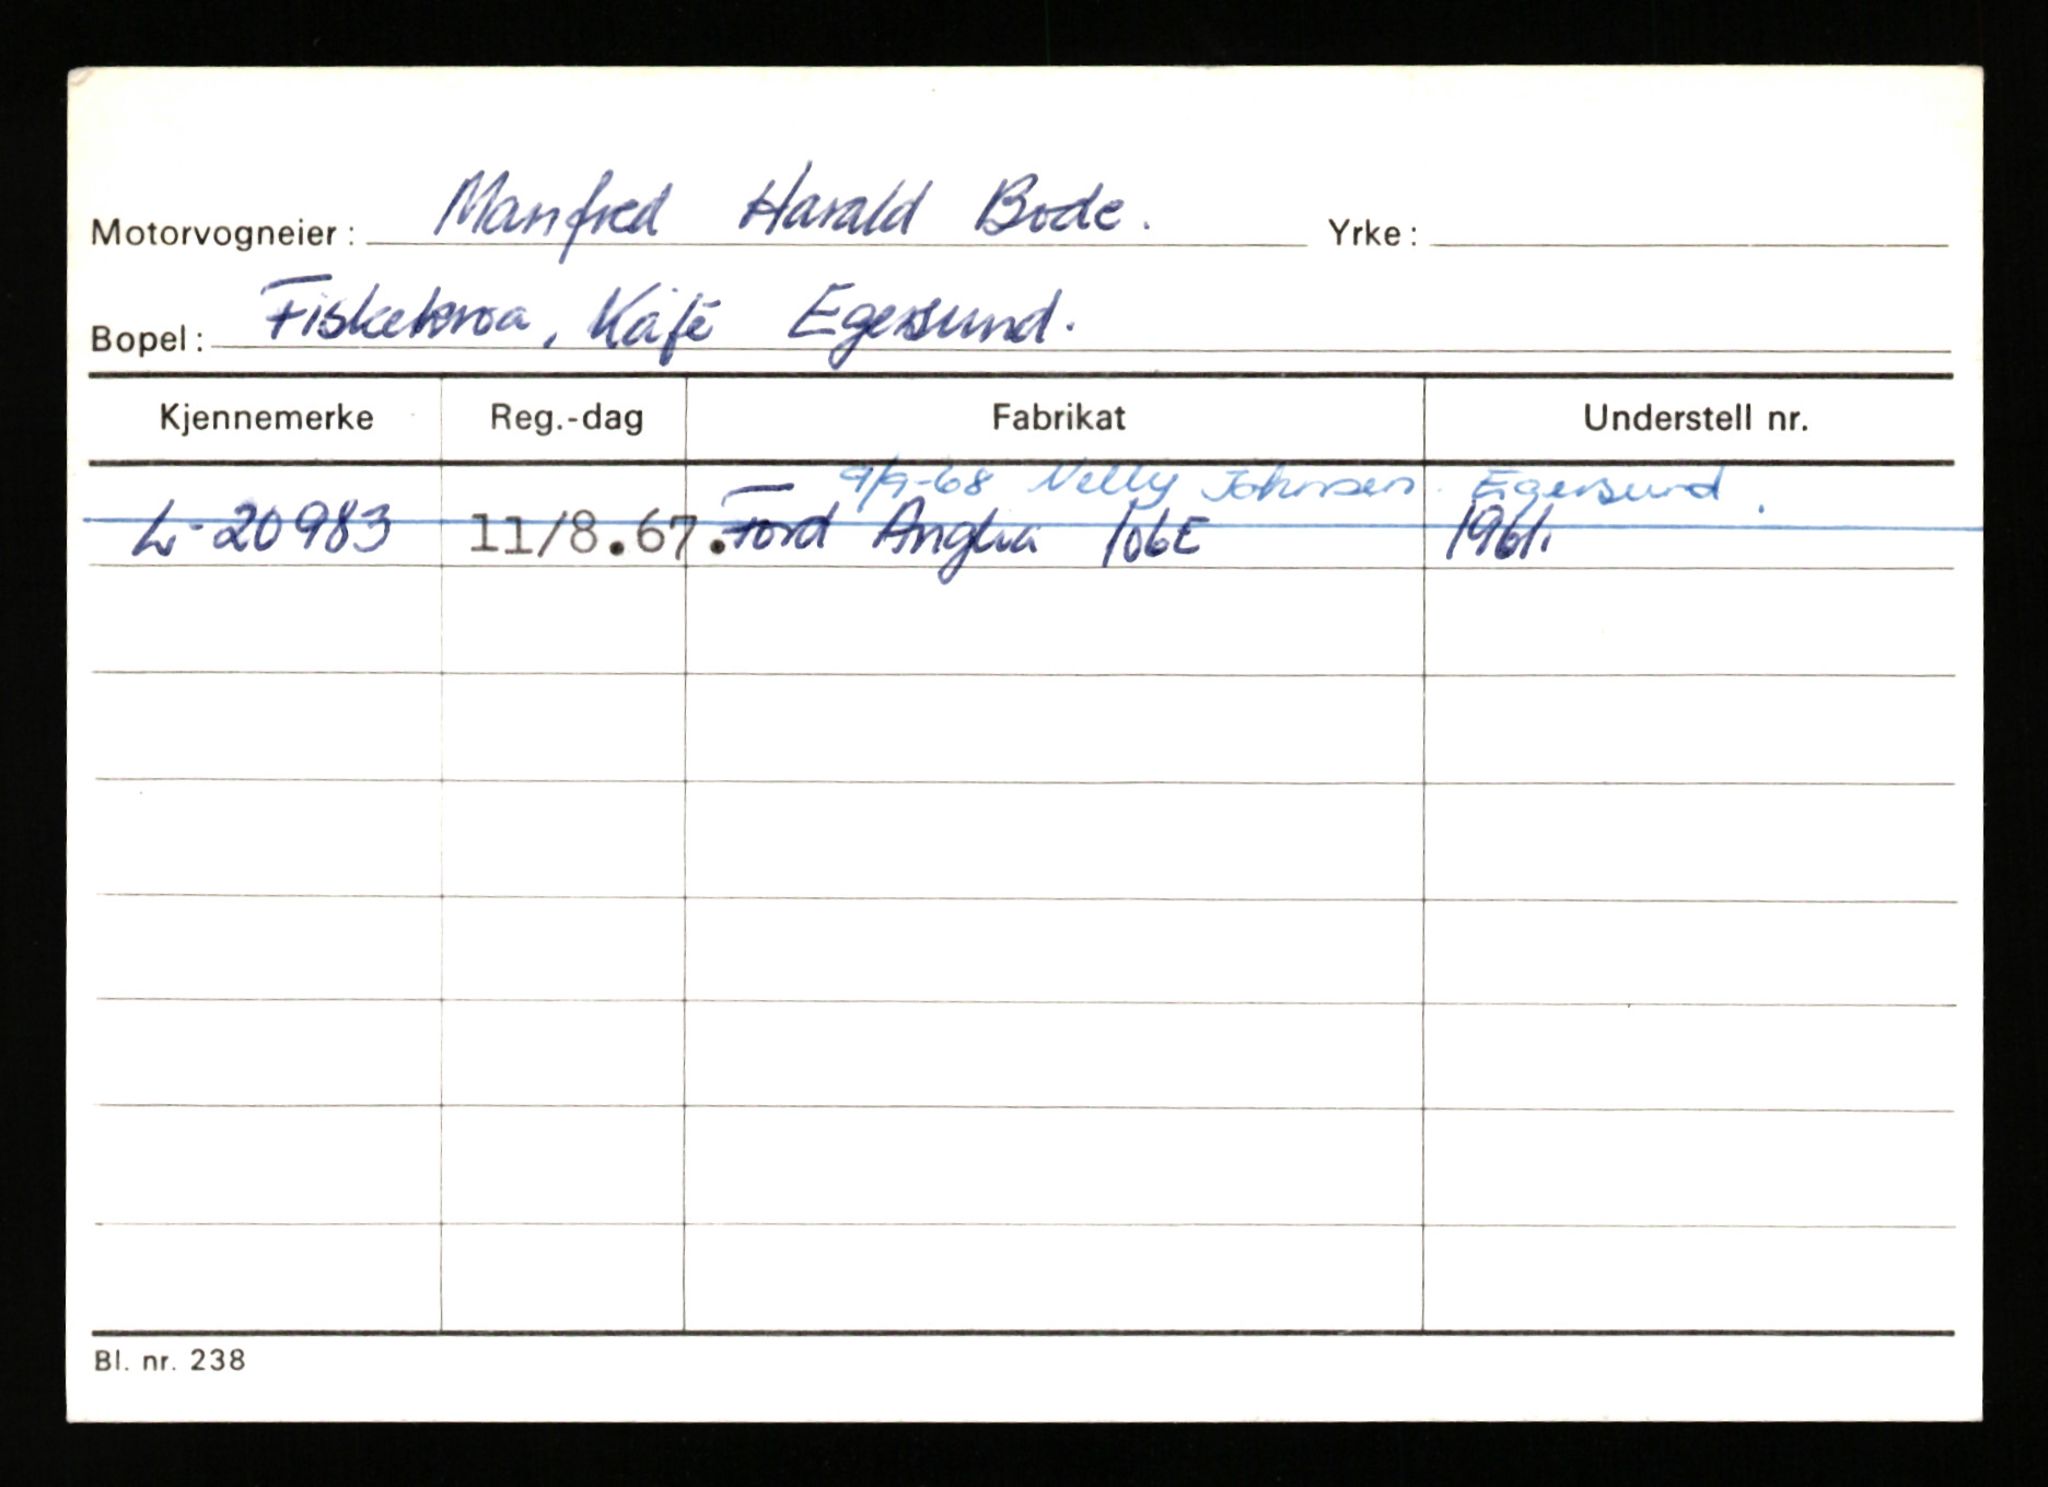 Motorvogneier: Manfred Harald Bode. Yrke:
Bopel: Fiskekroa, Kafè Egersund.
Kjennemerke Reg.-dag Fabrikat Understell nr.
9/9-68 Nelly Johnsen. Egersund.
L-20983 11/8.67. Ford Anglia 106E 1961.
Bl. nr. 238